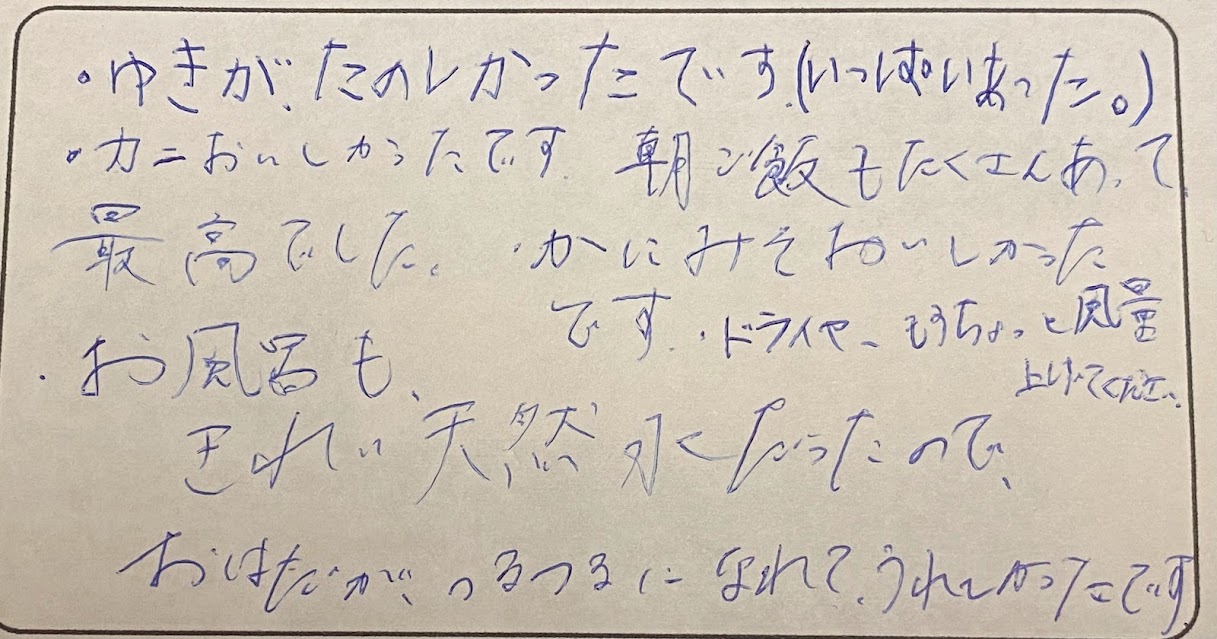 ・ゆきが、たのしかったです。(いっぱいあった。)
・カニおいしかったです。朝ご飯もたくさんあって、
最高でした。・かにみそおいしかった
です。・ドライヤーもうちょっと風量
上げてください。
・お風呂も、
きれい天然水だったので、
おはだが、つるつるになれて、うれしかったです